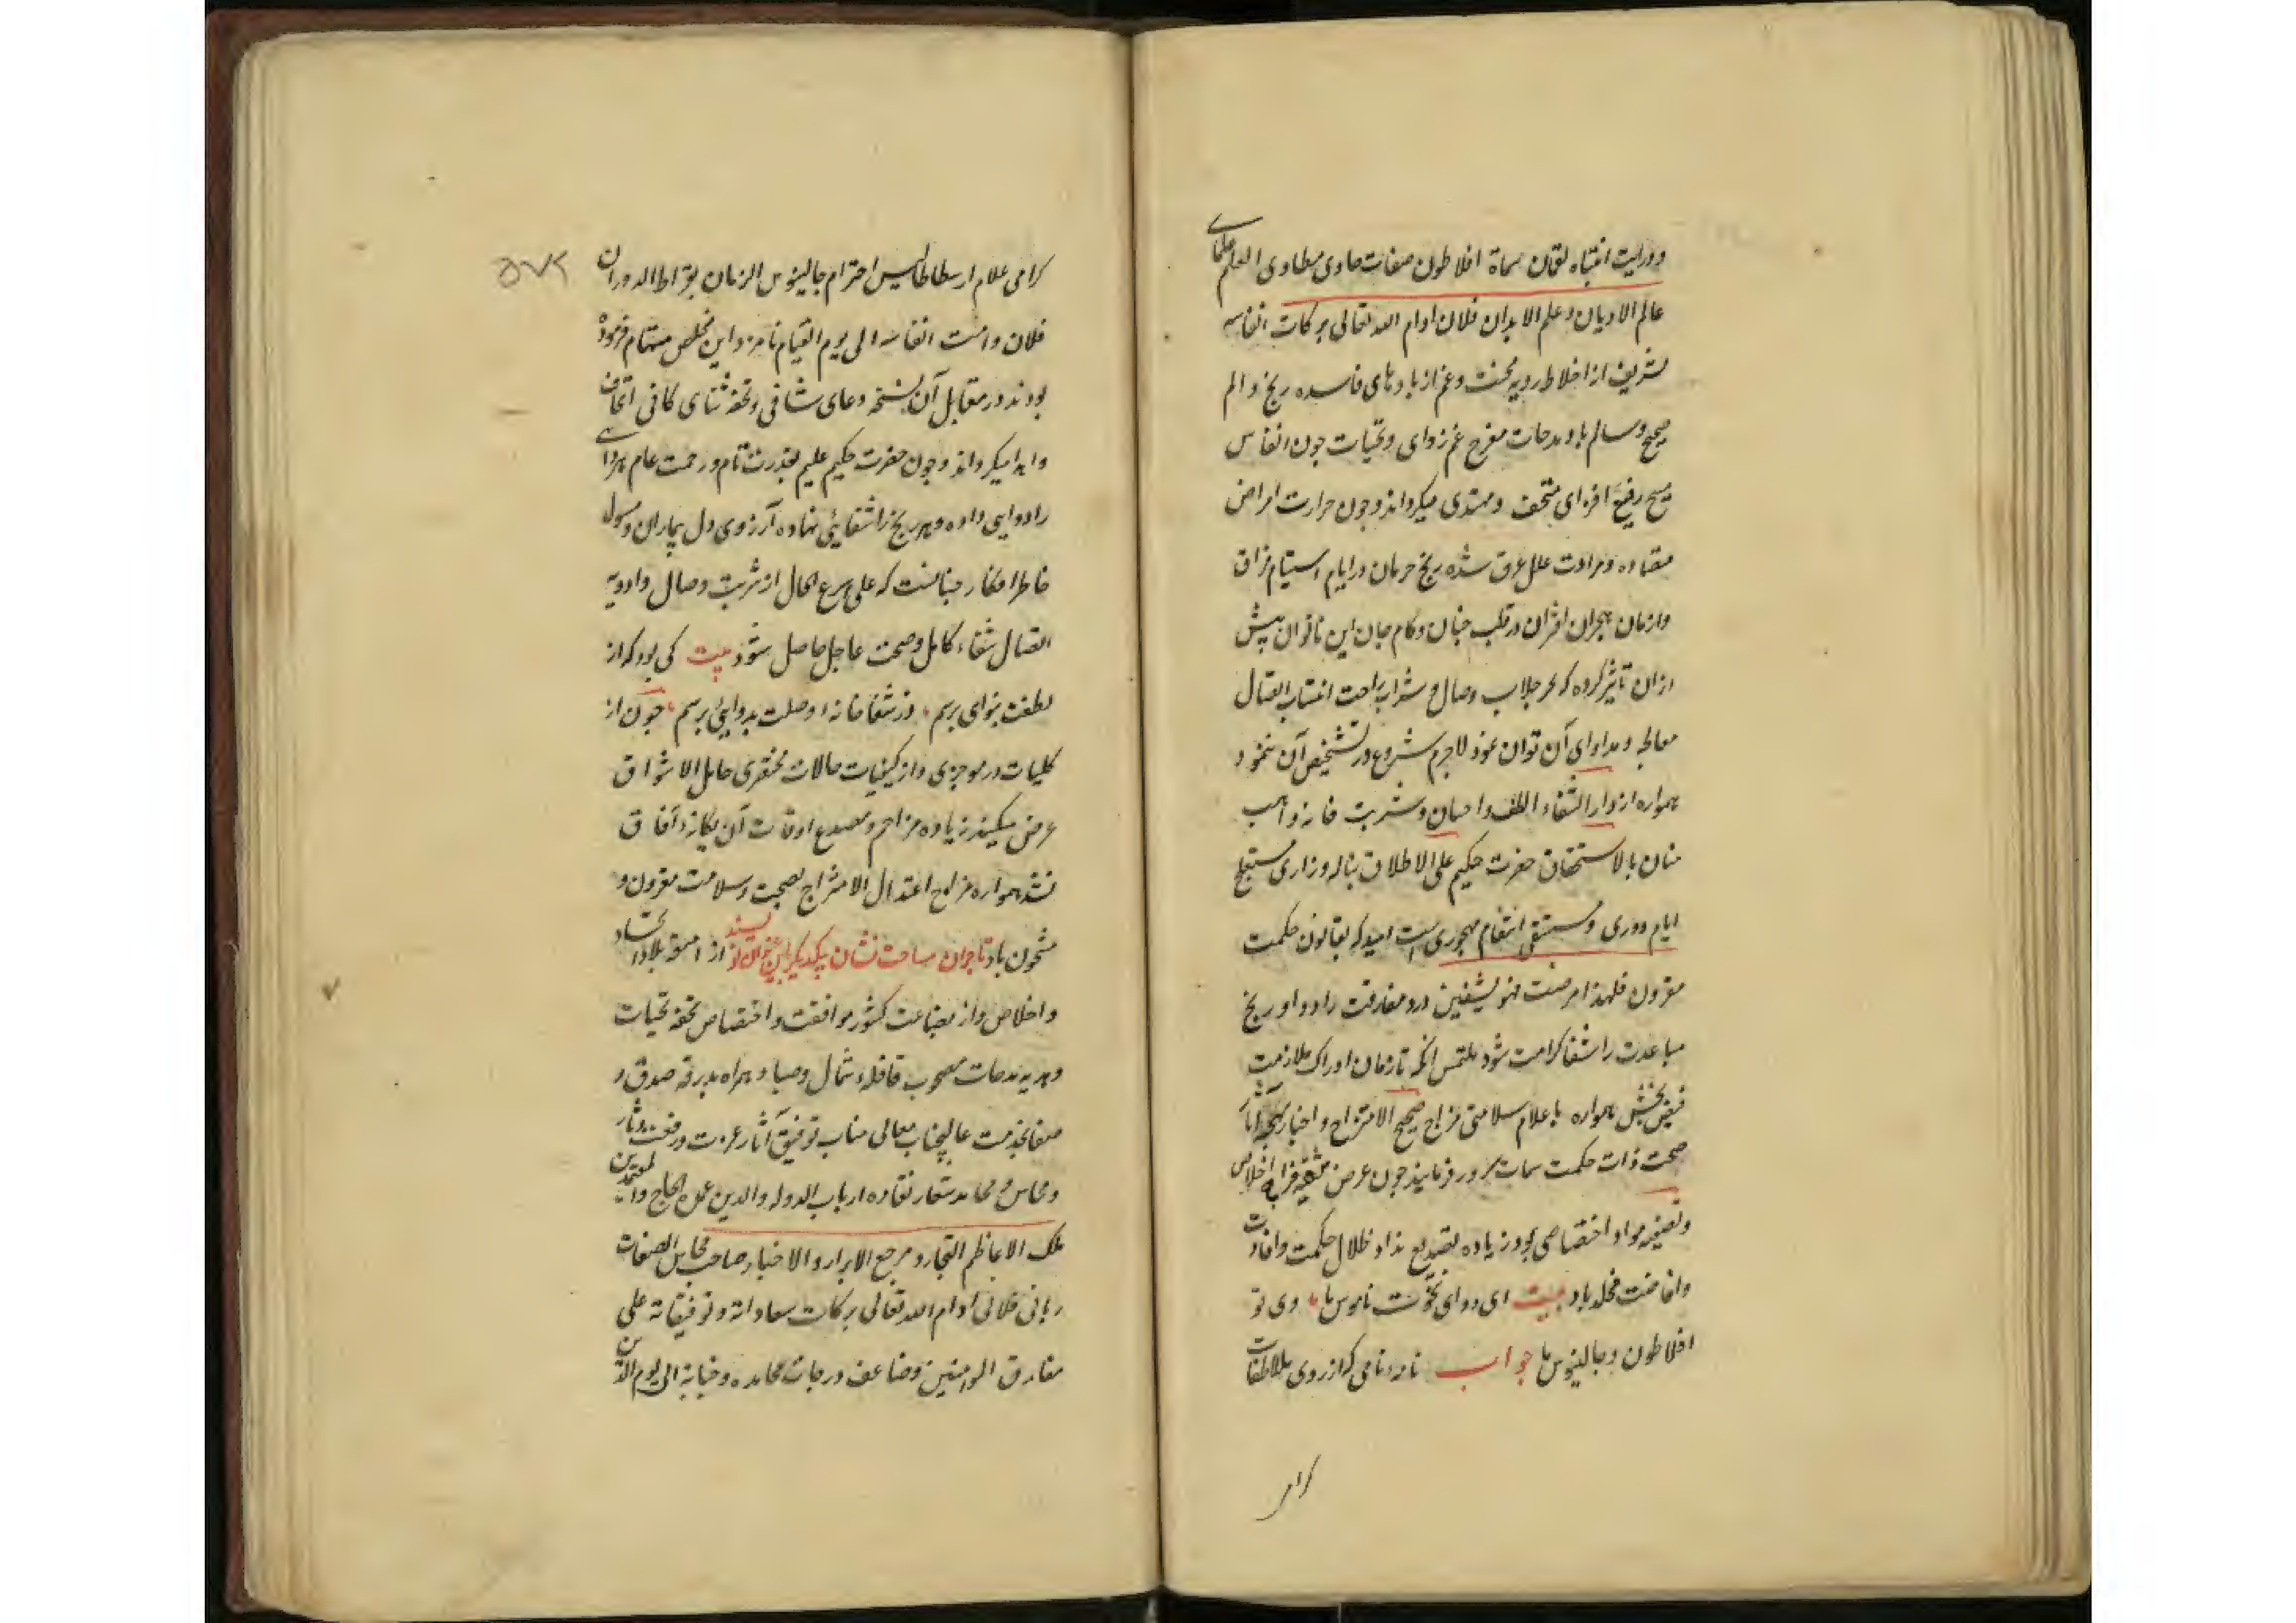 و درایت انتباه لقمان سماة افلاطون صفات حاوی مطاوی العلم علمای
عالم الادیان و علم الابدان فلان ادام الله تعالی برکات انفاسه
شریف از اخلاط ردیه محنت و غم از بادهای فاسده رنج و الم
صحیح و سالم باد مدحات مفرح غم زدای و تحیات چون انفاس
مسیح رفیع افزای متحف و مهتدی میکرداند و چون حرارت امراض
مقتاده و مرادت علل عرق شده رنج حرمان در ایام استیام فراق
و ازمان هجران اقتران در قلب جنان و کام جان این ناتوان پیش
ازان تاثیر کرده که بجز جلاب وصال و شراب راحت انتساب اتصال
معالجه و مداوای آن توان نمود لاجرم شروع در تشخیص آن ننمود
همواره از دار الشفاء الطف و احسان و شربت خانه واهب
منان بالاستحقاق حضرت حکیم علی الاطلاق بناله و زاری مستعلج
ایام دوری و مستشفی انتقام مهجوری است امید که بقانون حکمت
مقرون فلهذا مرضت فهو یشفین درد مفارقت را دوا و رنج
مباعدت را شفا کرامت شود ملتمس انکه تا زمان ادراک ملازمت
فیض بخش همواره باعلام سلامتی مزاج صحیح الامتزاج و اخبار بهجة آثار
صحت ذات حکمت سمات مسرور فرمایند چون عرض اخلاص
و تصفیه مواد اختصاصی بود زیاده تصدیع نداد ظلال حکمت و افادت
و افاضت مخلد باد بیت ای دوای نخوت ناموس ما وی تو
افلاطون و جالینوس ما جواب نامه نامی که از روی ملاطفات
کرامی
۵۷۲
کرامی علام ارسطاطالیس احترام جالینوس الزمان بقراط الدوران
فلان دامت انفاسه الی یوم القیام نامزد این مخلص مستهام فرموده
بودند در مقابل آن نسخه دعای شافی و تحفه ثنای کافی اتحاف
و اهدا میکرداند و چون حضرت حکیم علیم بقدرت تام و رحمت عام هر دردی
را دوایی داده و هر رنج را شفائی نهاده آرزوی دل بیماران و مسول
خاطر افکار چنانست که علی اسرع الحال از شربت وصال و ادویه
اتصال شفاء کامل و صحت عاجل حاصل شود بیت کی بود که از
لطفت بنوای برسم در شفاخانه وصلت بدوایی برسم چون از
کلیات در موجزی و از کیفیات حالات مختصری حامل الاشواق
عرض میکند زیاده مزاحم و مصدع اوقات آن یکانه آفاق
نشد همواره مزاج اعتدال الامتزاج بصحت و سلامت مقرون و
مشحون باد تاجران ساحت نشان بیکدیکر این عنوان نویسند از امتعه بلاد اتحاد
و اخلاص و از بضاعت کشور موافقت و اختصاص تحفه تحیات
و هدیه مدحات مصحوب قافله شمال و صبا و همراه بدرقه صدق و
صفا بخدمت عالیجناب معالی مناب توفیق آثار عزت و رفعت دثار
و محاسن و محامد شعار نقاده ارباب الدوله والدین عمدة الحاج والمعتمدین
ملک الاعاظم التجار و مرجع الابرار والاخیار صاحب محاسن الصفات
ربانی فلانی ادام الله تعالی برکات سعاداته و توفیقاته علی
مفارق الوامقین و ضاعف درجات محامده و جنابه الی یوم الدین